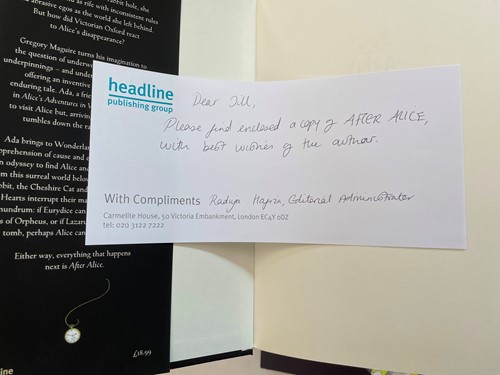 bbit hole, she
as rife with inconsistent rules
abrasive egos as the world she left behind.
But how did Victorian Oxford react
to Alice's disappearance?
Gregory Maguire turns his imagination to
the question of underw
underpinnings – and under
offering an inventive
enduring tale. Ada, a frie
in Alice's Adventures in W
to visit Alice but, arriving
tumbles down the ra
Ada brings to Wonderla
prehension of cause and e
n odyssey to find Alice and
om this surreal world below
bbit, the Cheshire Cat and
Hearts interrupt their ma
nundrum: if Eurydice can
s of Orpheus, or if Lazaru
tomb, perhaps Alice can
Either way, everything that happens
next is After Alice.
£18.99
ine
headline
publishing group
Dear Jill,
Please find enclosed a copy of AFTER ALICE,
with best wishes of the author.
With Compliments Editorial Administrator
Carmelite House, 50 Victoria Embankment, London EC4Y 0DZ
tel: 020 3122 7222